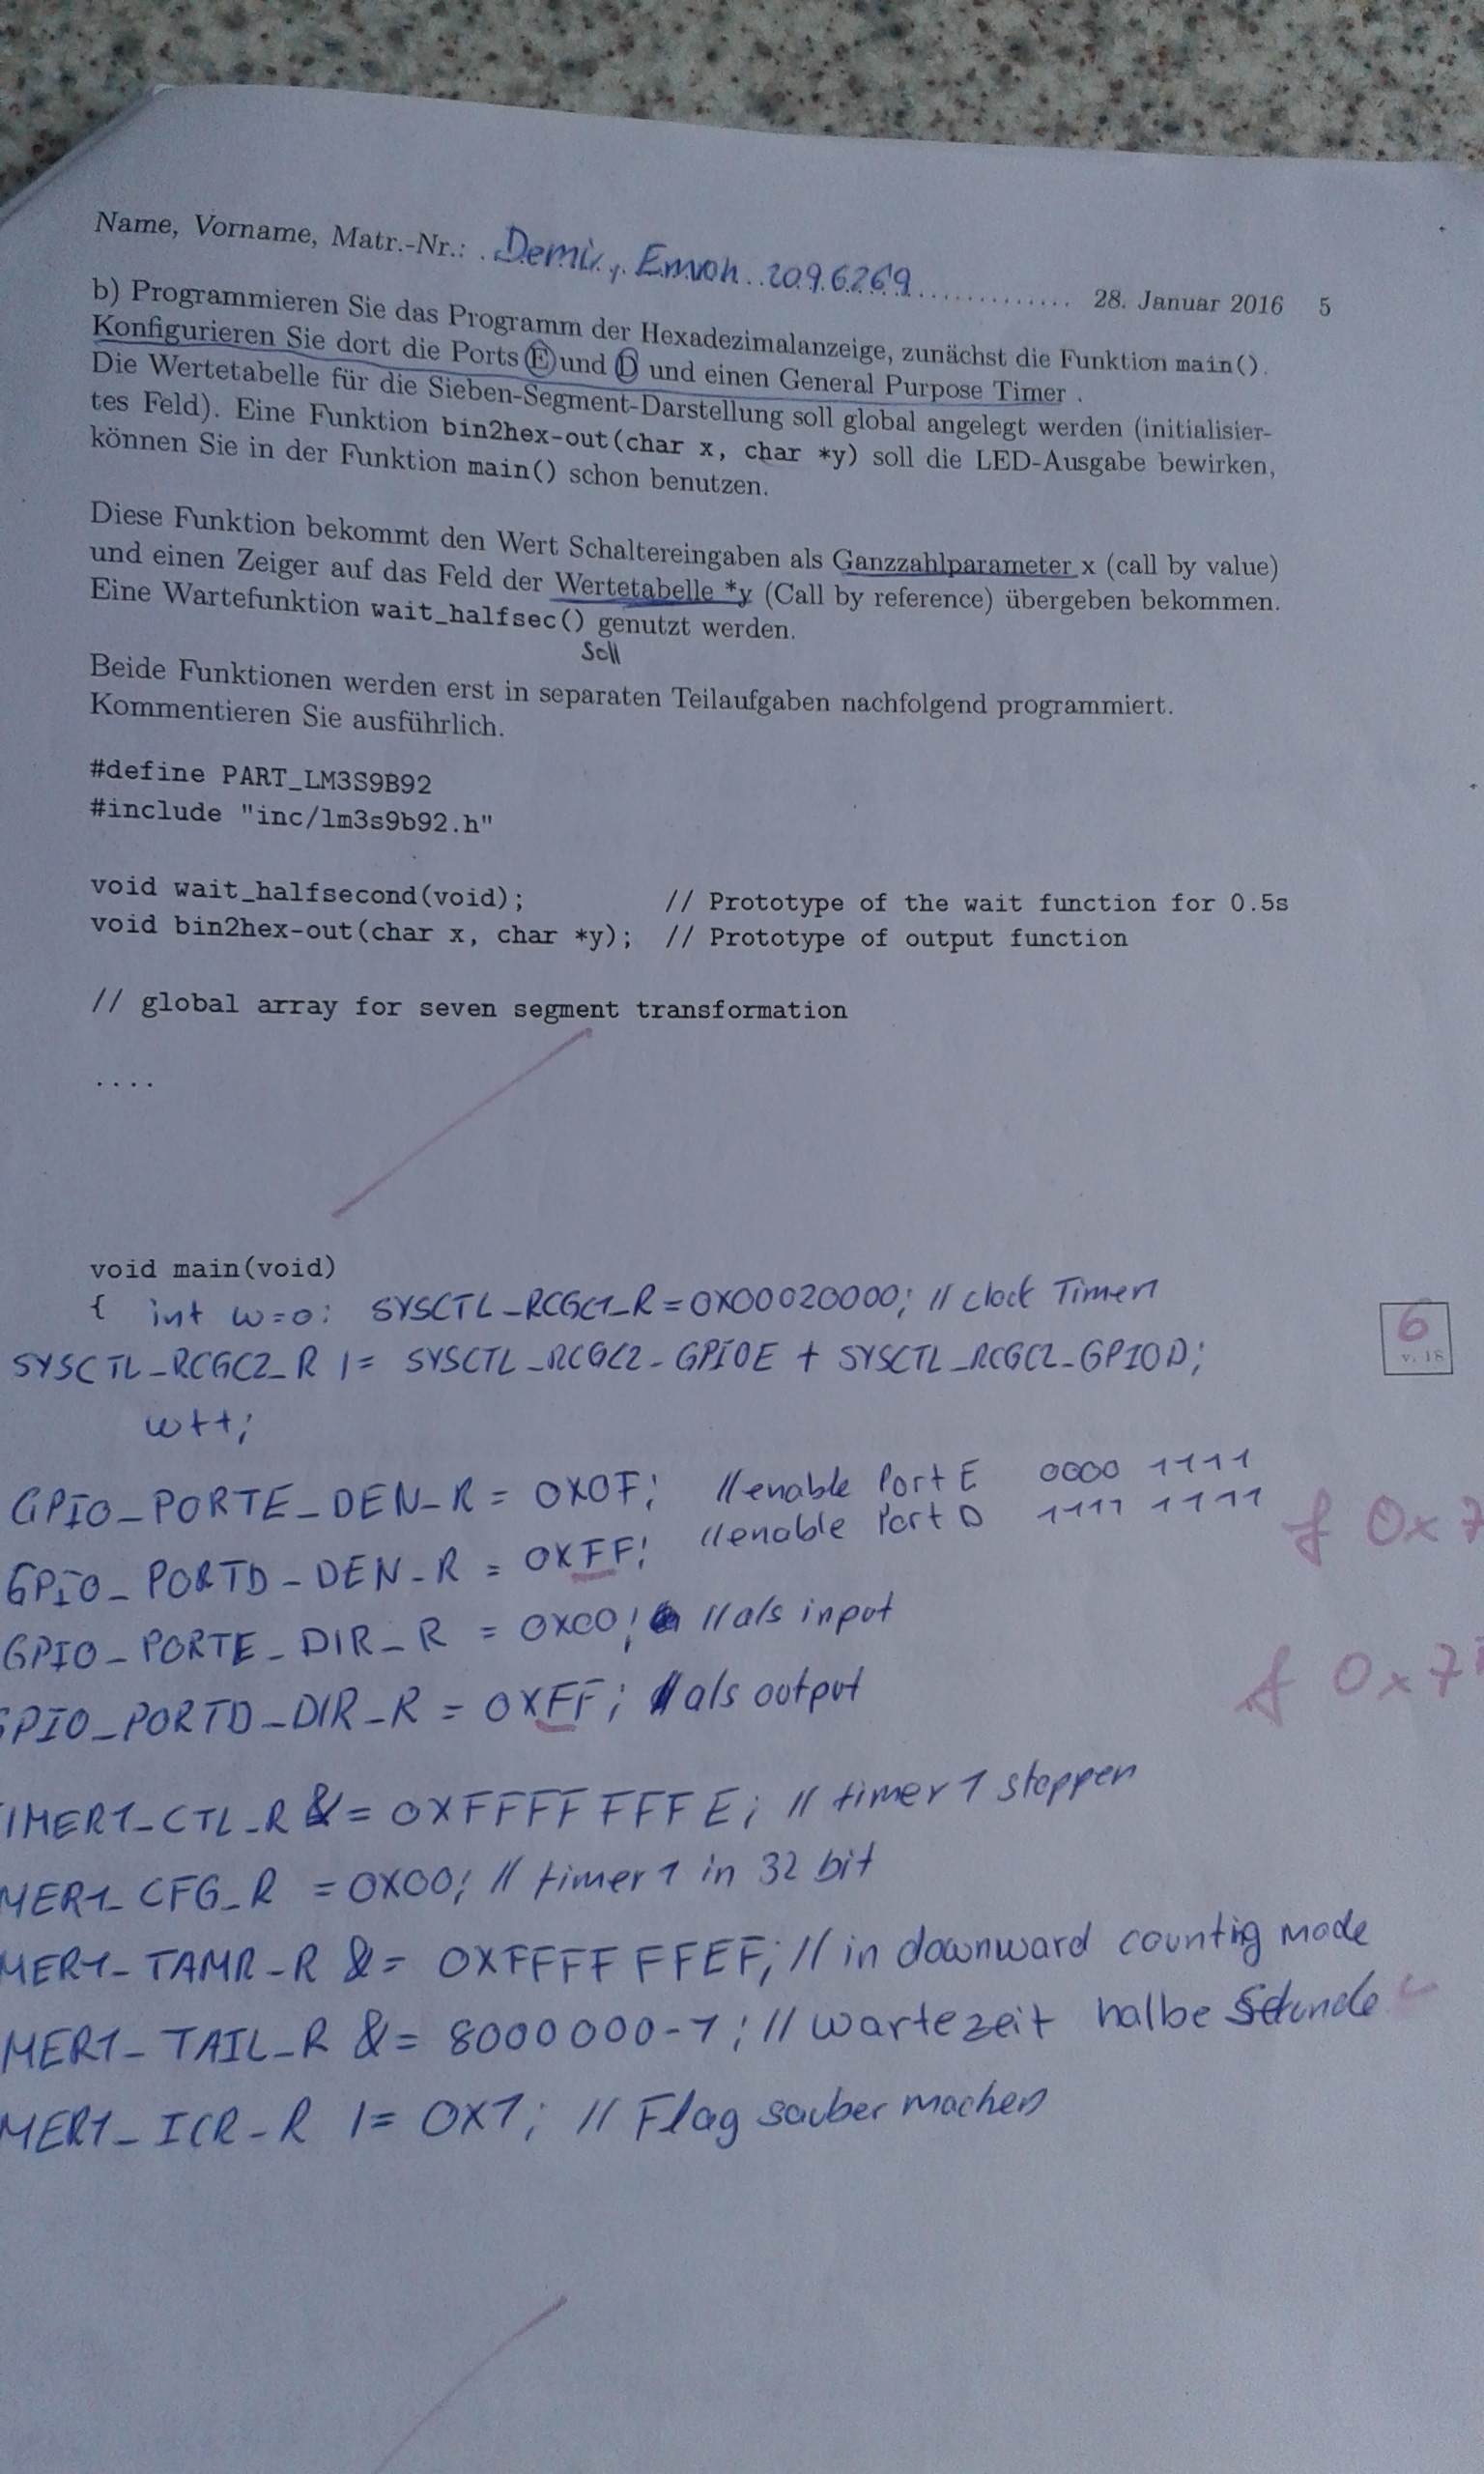 Name, Vorname, Matr.-Nr.: . Demir, Emrah..209.6269............. 28. Januar 2016 5
b) Programmieren Sie das Programm der Hexadezimalanzeige, zunächst die Funktion main().
Konfigurieren Sie dort die Ports E und D und einen General Purpose Timer .
Die Wertetabelle für die Sieben-Segment-Darstellung soll global angelegt werden (initialisier-
tes Feld). Eine Funktion bin2hex-out(char x, char *y) soll die LED-Ausgabe bewirken,
können Sie in der Funktion main() schon benutzen.
Diese Funktion bekommt den Wert Schaltereingaben als Ganzzahlparameter x (call by value)
und einen Zeiger auf das Feld der Wertetabelle *y (Call by reference) übergeben bekommen.
Eine Wartefunktion wait_halfsec() genutzt werden.
Soll
Beide Funktionen werden erst in separaten Teilaufgaben nachfolgend programmiert.
Kommentieren Sie ausführlich.
#define PART_LM3S9B92
#include "inc/lm3s9b92.h"
void wait_halfsecond(void); // Prototype of the wait function for 0.5s
void bin2hex-out(char x, char *y); // Prototype of output function
// global array for seven segment transformation
....
void main(void)
{ int w=0; SYSCTL_RCGC1_R = 0X00020000; // clock Timer1
SYSCTL_RCGC2_R |= SYSCTL_RCGC2_GPIOE + SYSCTL_RCGC2_GPIOD;
6
v. 18
w++;
GPIO_PORTE_DEN_R = 0X0F; // enable Port E 0000 1111
GPIO_PORTD_DEN_R = 0XFF; // enable Port D 1111 1111
f 0x7
GPIO_PORTE_DIR_R = 0X00; // als input
GPIO_PORTD_DIR_R = 0XFF; // als output
f 0x7
TIMER1_CTL_R &= 0XFFFF FFFE; // timer 1 stoppen
MER1_CFG_R = 0X00; // timer 1 in 32 bit
MER1_TAMR_R &= 0XFFFF FFEF; // in downward countig mode
MER1_TAIL_R &= 8000000-1; // wartezeit halbe Sekunde
MER1_ICR_R |= 0X1; // Flag sauber machen